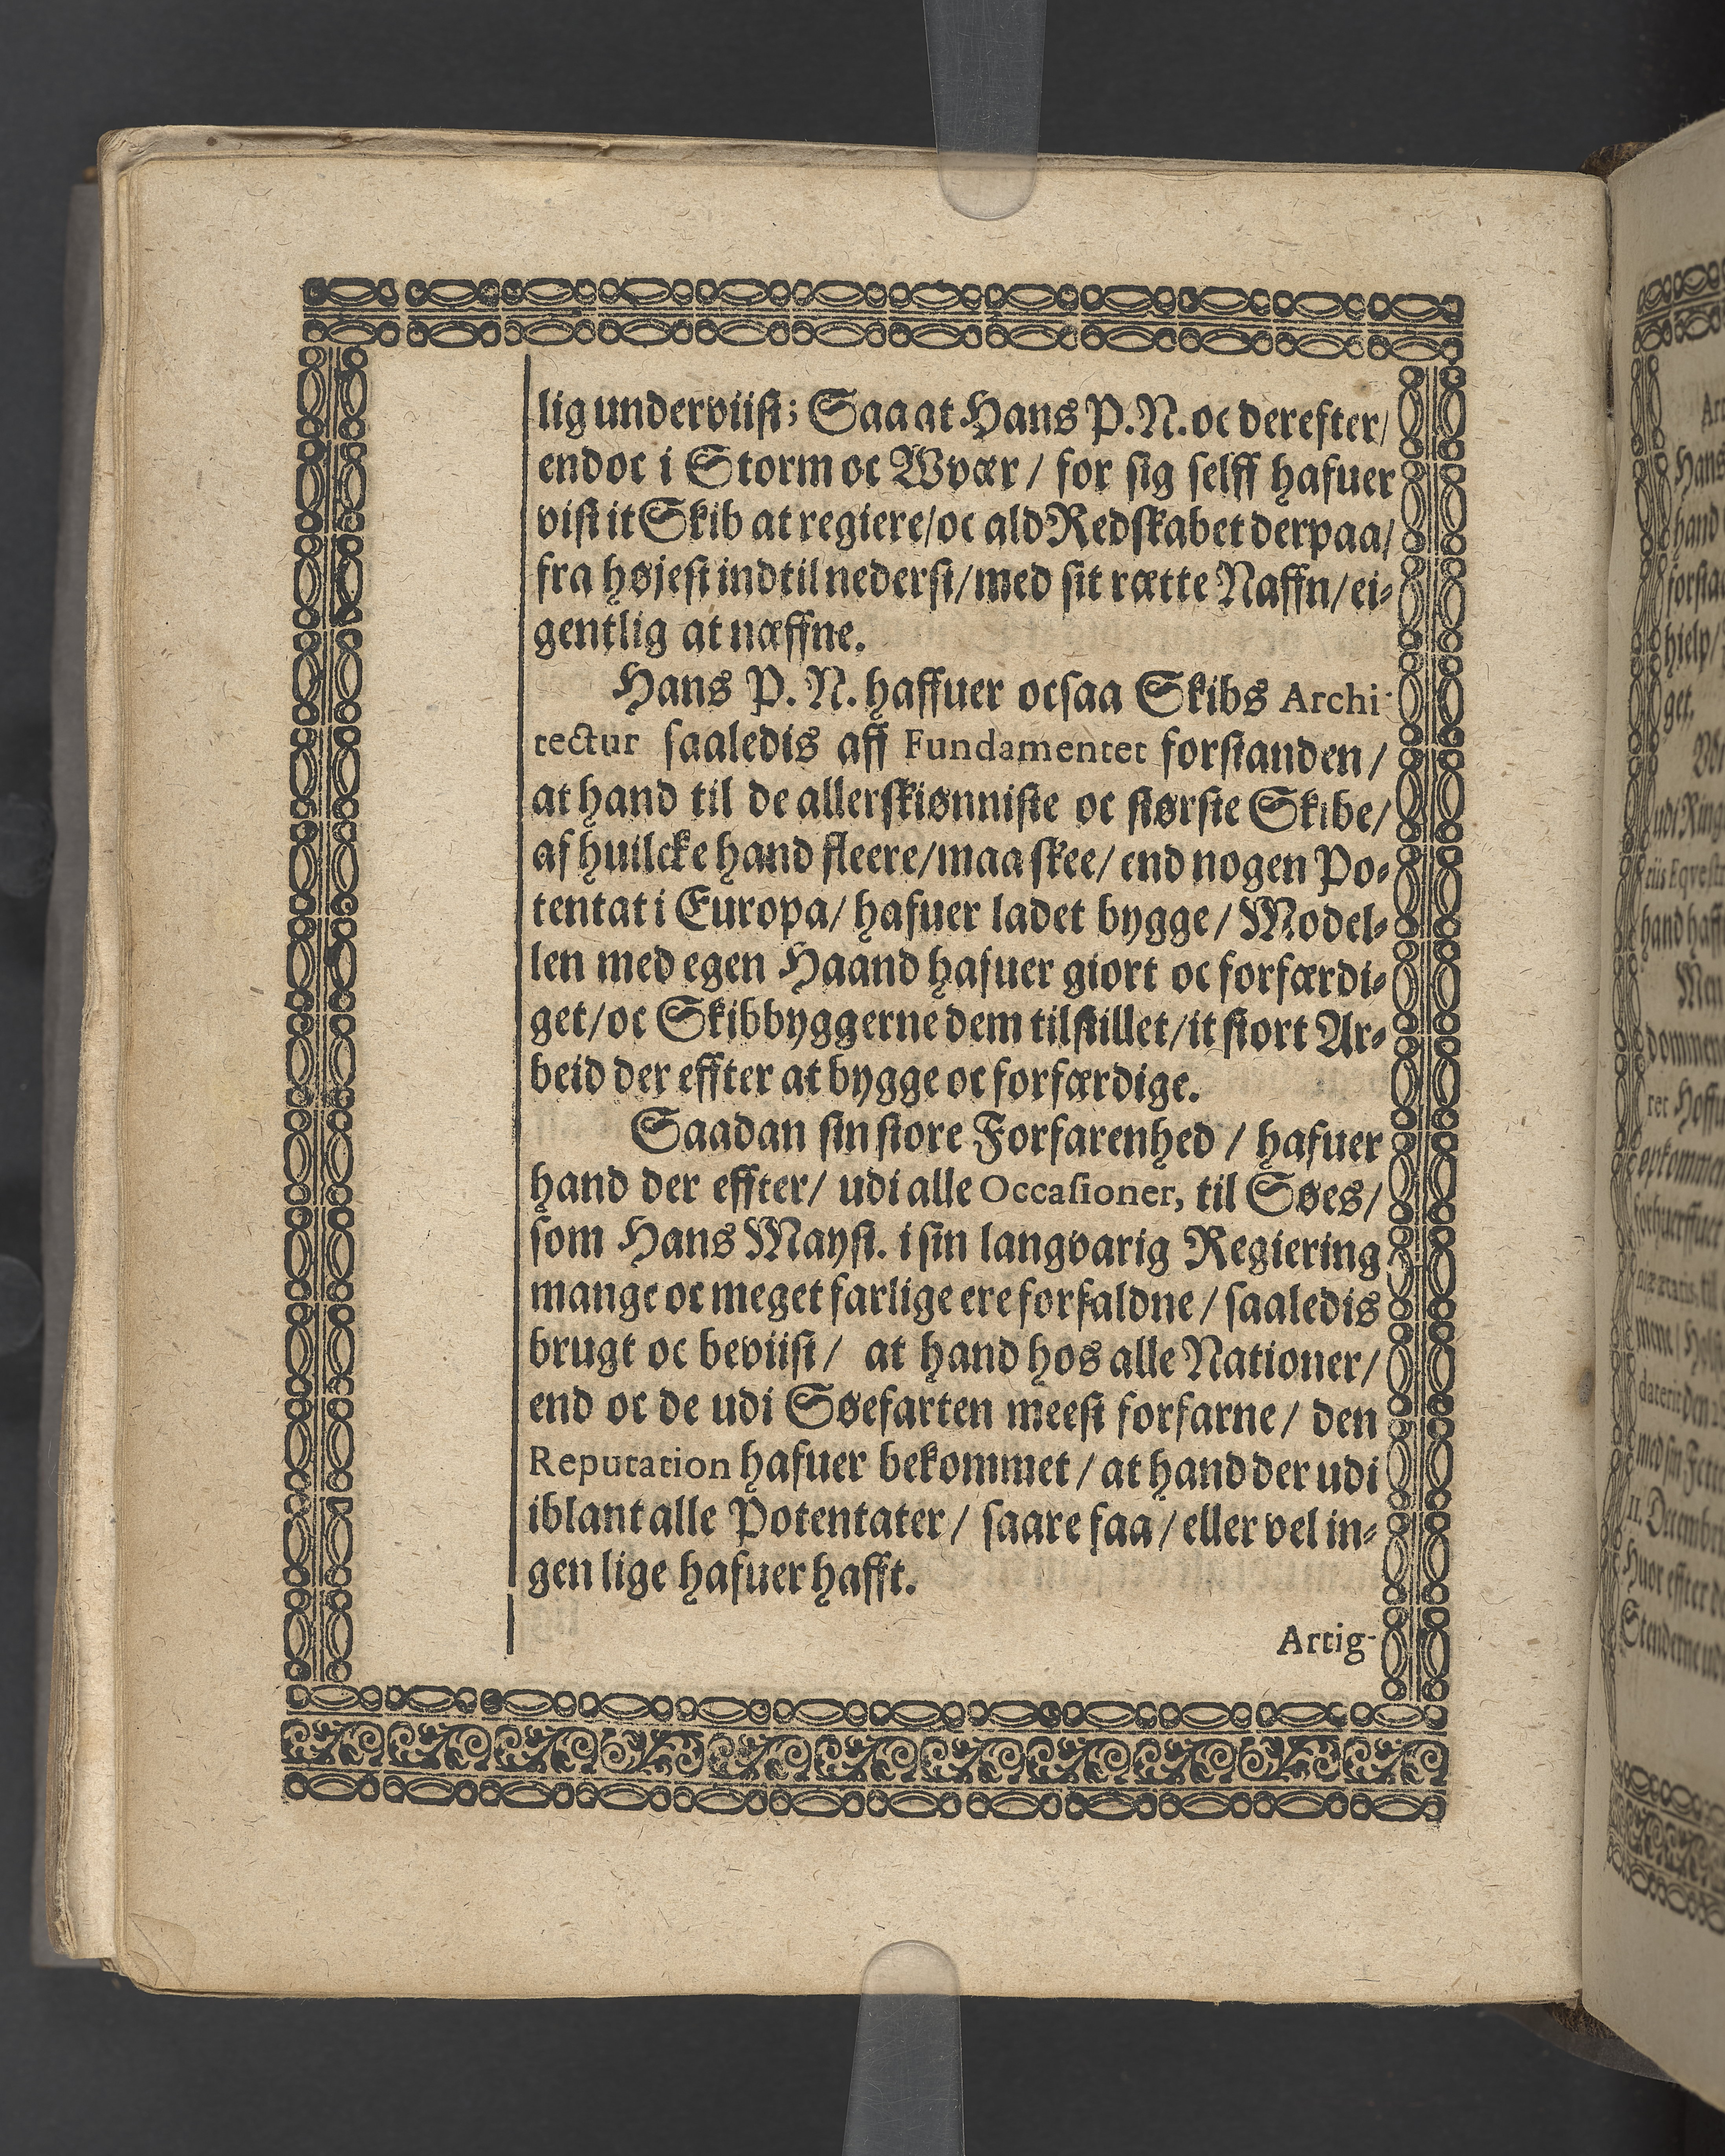 lig underviist; Saa at Hans P. N. oc derefter/
endoc i Storm oc Wvær / for sig selff hafuer
vist it Skib at regiere/oc ald Redskabet derpaa/
fra højest indtil nederst/med sit rætte Naffn/ei-
gentlig at næffne.
Hans P. N. haffuer ocsaa Skibs Archi-
tectur saaledis aff Fundamentet forstanden /
at hand til de allerskiønniste oc største Skibe/
af huilcke hand fleere/maa skee/ end nogen Po-
tentat i Europa/ hafuer ladet bygge / Model-
len med egen Haand hafuer giort oc forfærdi-
get/oc Skibbyggerne dem tilstillet/it stort Ar-
beid der effter at bygge oc forfærdige.
Saadan sin store Forfarenhed / hafuer
hand der effter/ udi alle Occasioner, til Søes/
som Hans Mayst. i sin langvarig Regiering
mange oc meget farlige ere forfaldne / saaledis
brugt oc beviist / at hand hos alle Nationer/
end oc de udi Søefarten meest forfarne / den
Reputation hafuer bekommet / at hand der udi
iblant alle Potentater / saare faa / eller vel in-
gen lige hafuer hafft.
Artig-
Hans
hand
hjelp/
get.
dommen
ret
II. Decembris
Huor effter
Stenderne